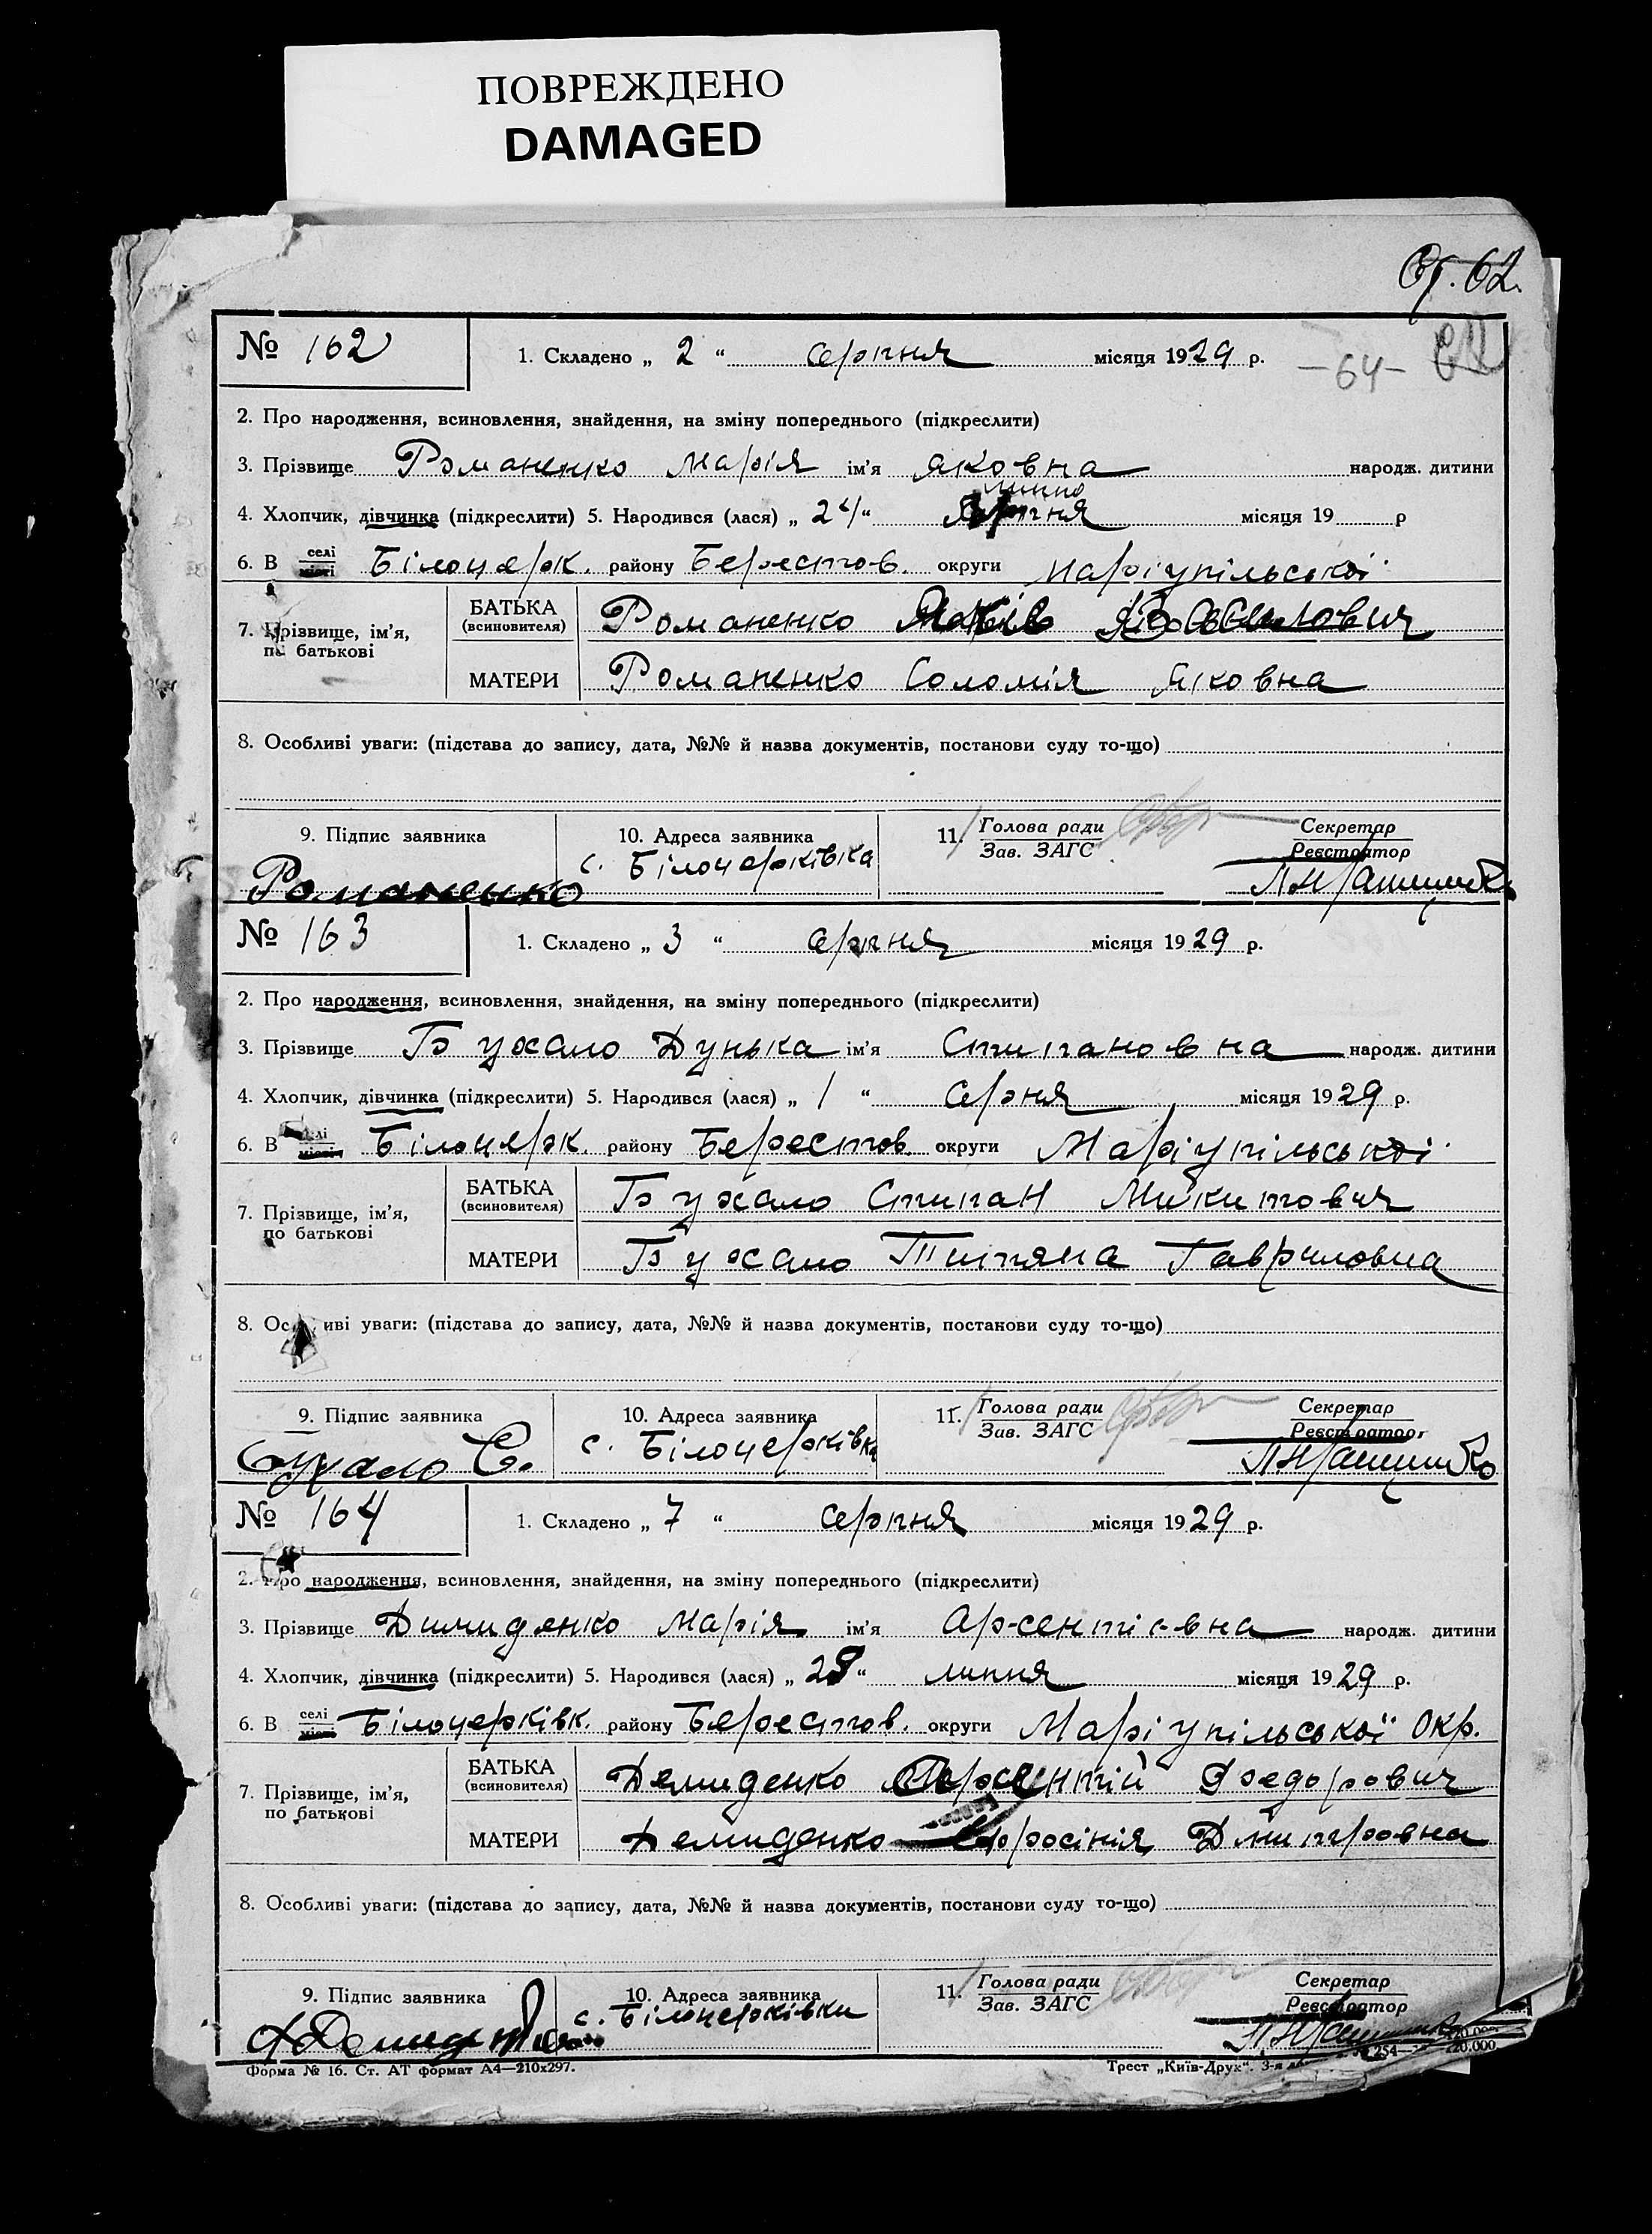 ПОВРЕЖДЕНО
DAMAGED
62.
№ 162
1. Складено „ 2 “ серпня місяця 1929 р.
– 64 –
2. Про народження, всиновлення, знайдення, на зміну попереднього (підкреслити)
3. Прізвище Романенко Марія ім'я Яковна народж. дитини
4. Хлопчик, дівчинка (підкреслити) 5. Народився (лася) „ 24 “ місяця 19 р
6. В селі місті Білоцерк. району Берестов. округи Маріупільської
7. Прізвище, ім'я, по батькові
БАТЬКА (всиновителя) Романенко Яків
МАТЕРИ Романенко Соломія Яковна
8. Особливі уваги: (підстава до запису, дата, №№ й назва документів, постанови суду то-що)
9. Підпис заявника
Романенко
10. Адреса заявника
с. Білоцерківка
11. Голова ради
Зав. ЗАГС
Секретар
Реєстратор
№ 163
1. Складено „ 3 “ серпня місяця 1929 р.
2. Про народження, всиновлення, знайдення, на зміну попереднього (підкреслити)
3. Прізвище Бухало Дунька ім'я Стипановна народж. дитини
4. Хлопчик, дівчинка (підкреслити) 5. Народився (лася) „ 1 “ серня місяця 1929 р.
6. В Білоцерк. району Берестов. округи Маріупільської
7. Прізвище, ім'я, по батькові
БАТЬКА (всиновителя) Бухало Стипан Микитович
МАТЕРИ Бухало Титяна Гавриловна
8. Ос иві уваги: (підстава до запису, дата, №№ й назва документів, постанови суду то-що)
9. Підпис заявника
Бухало С.
10. Адреса заявника
с. Білоцерківка
11. Голова ради
Зав. ЗАГС
Секретар
Реєстратор
№ 164
1. Складено „ 7 “ серпня місяця 1929 р.
2. Про народження, всиновлення, знайдення, на зміну попереднього (підкреслити)
3. Прізвище Димиденко Марія ім'я Арсентієвна народж. дитини
4. Хлопчик, дівчинка (підкреслити) 5. Народився (лася) „ 29 “ липня місяця 1929 р.
6. В селі місті Білоцерківк. району Берестов. округи Маріупільської Окр.
7. Прізвище, ім'я, по батькові
БАТЬКА (всиновителя) Демиденко Арсентій Федорович
МАТЕРИ Демиденко Єфросінія Дмитровна
8. Особливі уваги: (підстава до запису, дата, №№ й назва документів, постанови суду то-що)
9. Підпис заявника
10. Адреса заявника
с. Білоцерківка
11. Голова ради
Зав. ЗАГС
Секретар
Реєстратор
Форма № 16. Ст. АТ формат А4—210х297.
Трест „Київ-Друк“. 3-я 254— 20.000